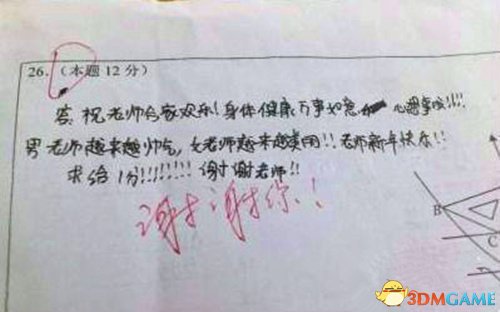 26.（本题12分）
答：祝老师合家欢乐！身体健康 万事如意 心想事成！！！！
男老师越来越帅气，女老师越来越美丽！！老师新年快乐！！
求给1分！！！！！！！！谢谢老师！！
谢谢你！！
B
C
3DMGAME